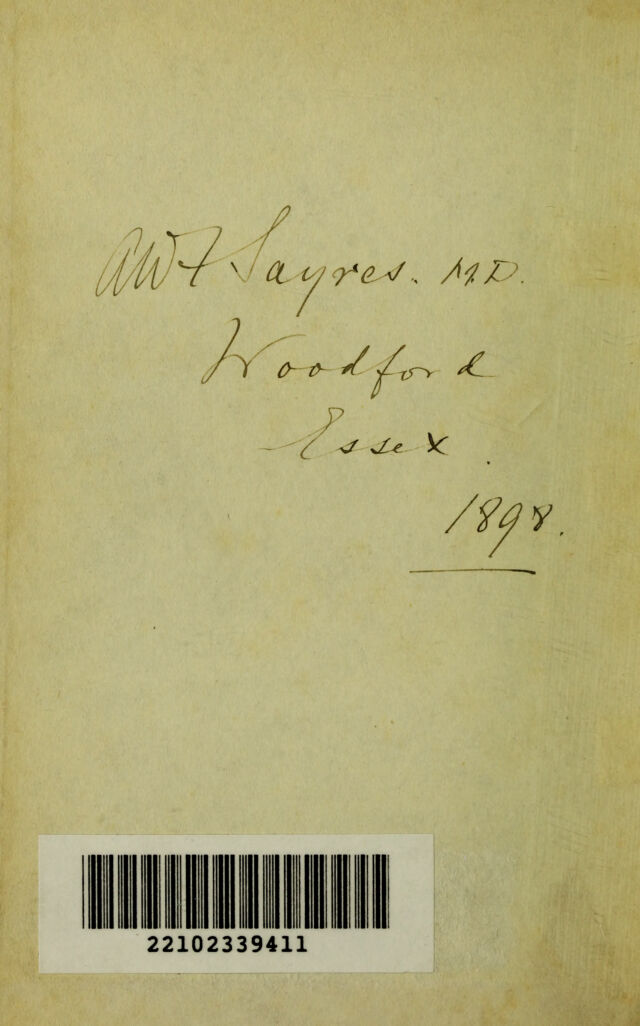 AWF Sayres. M.D.
Woodford
Essex.
1898.
22102339411